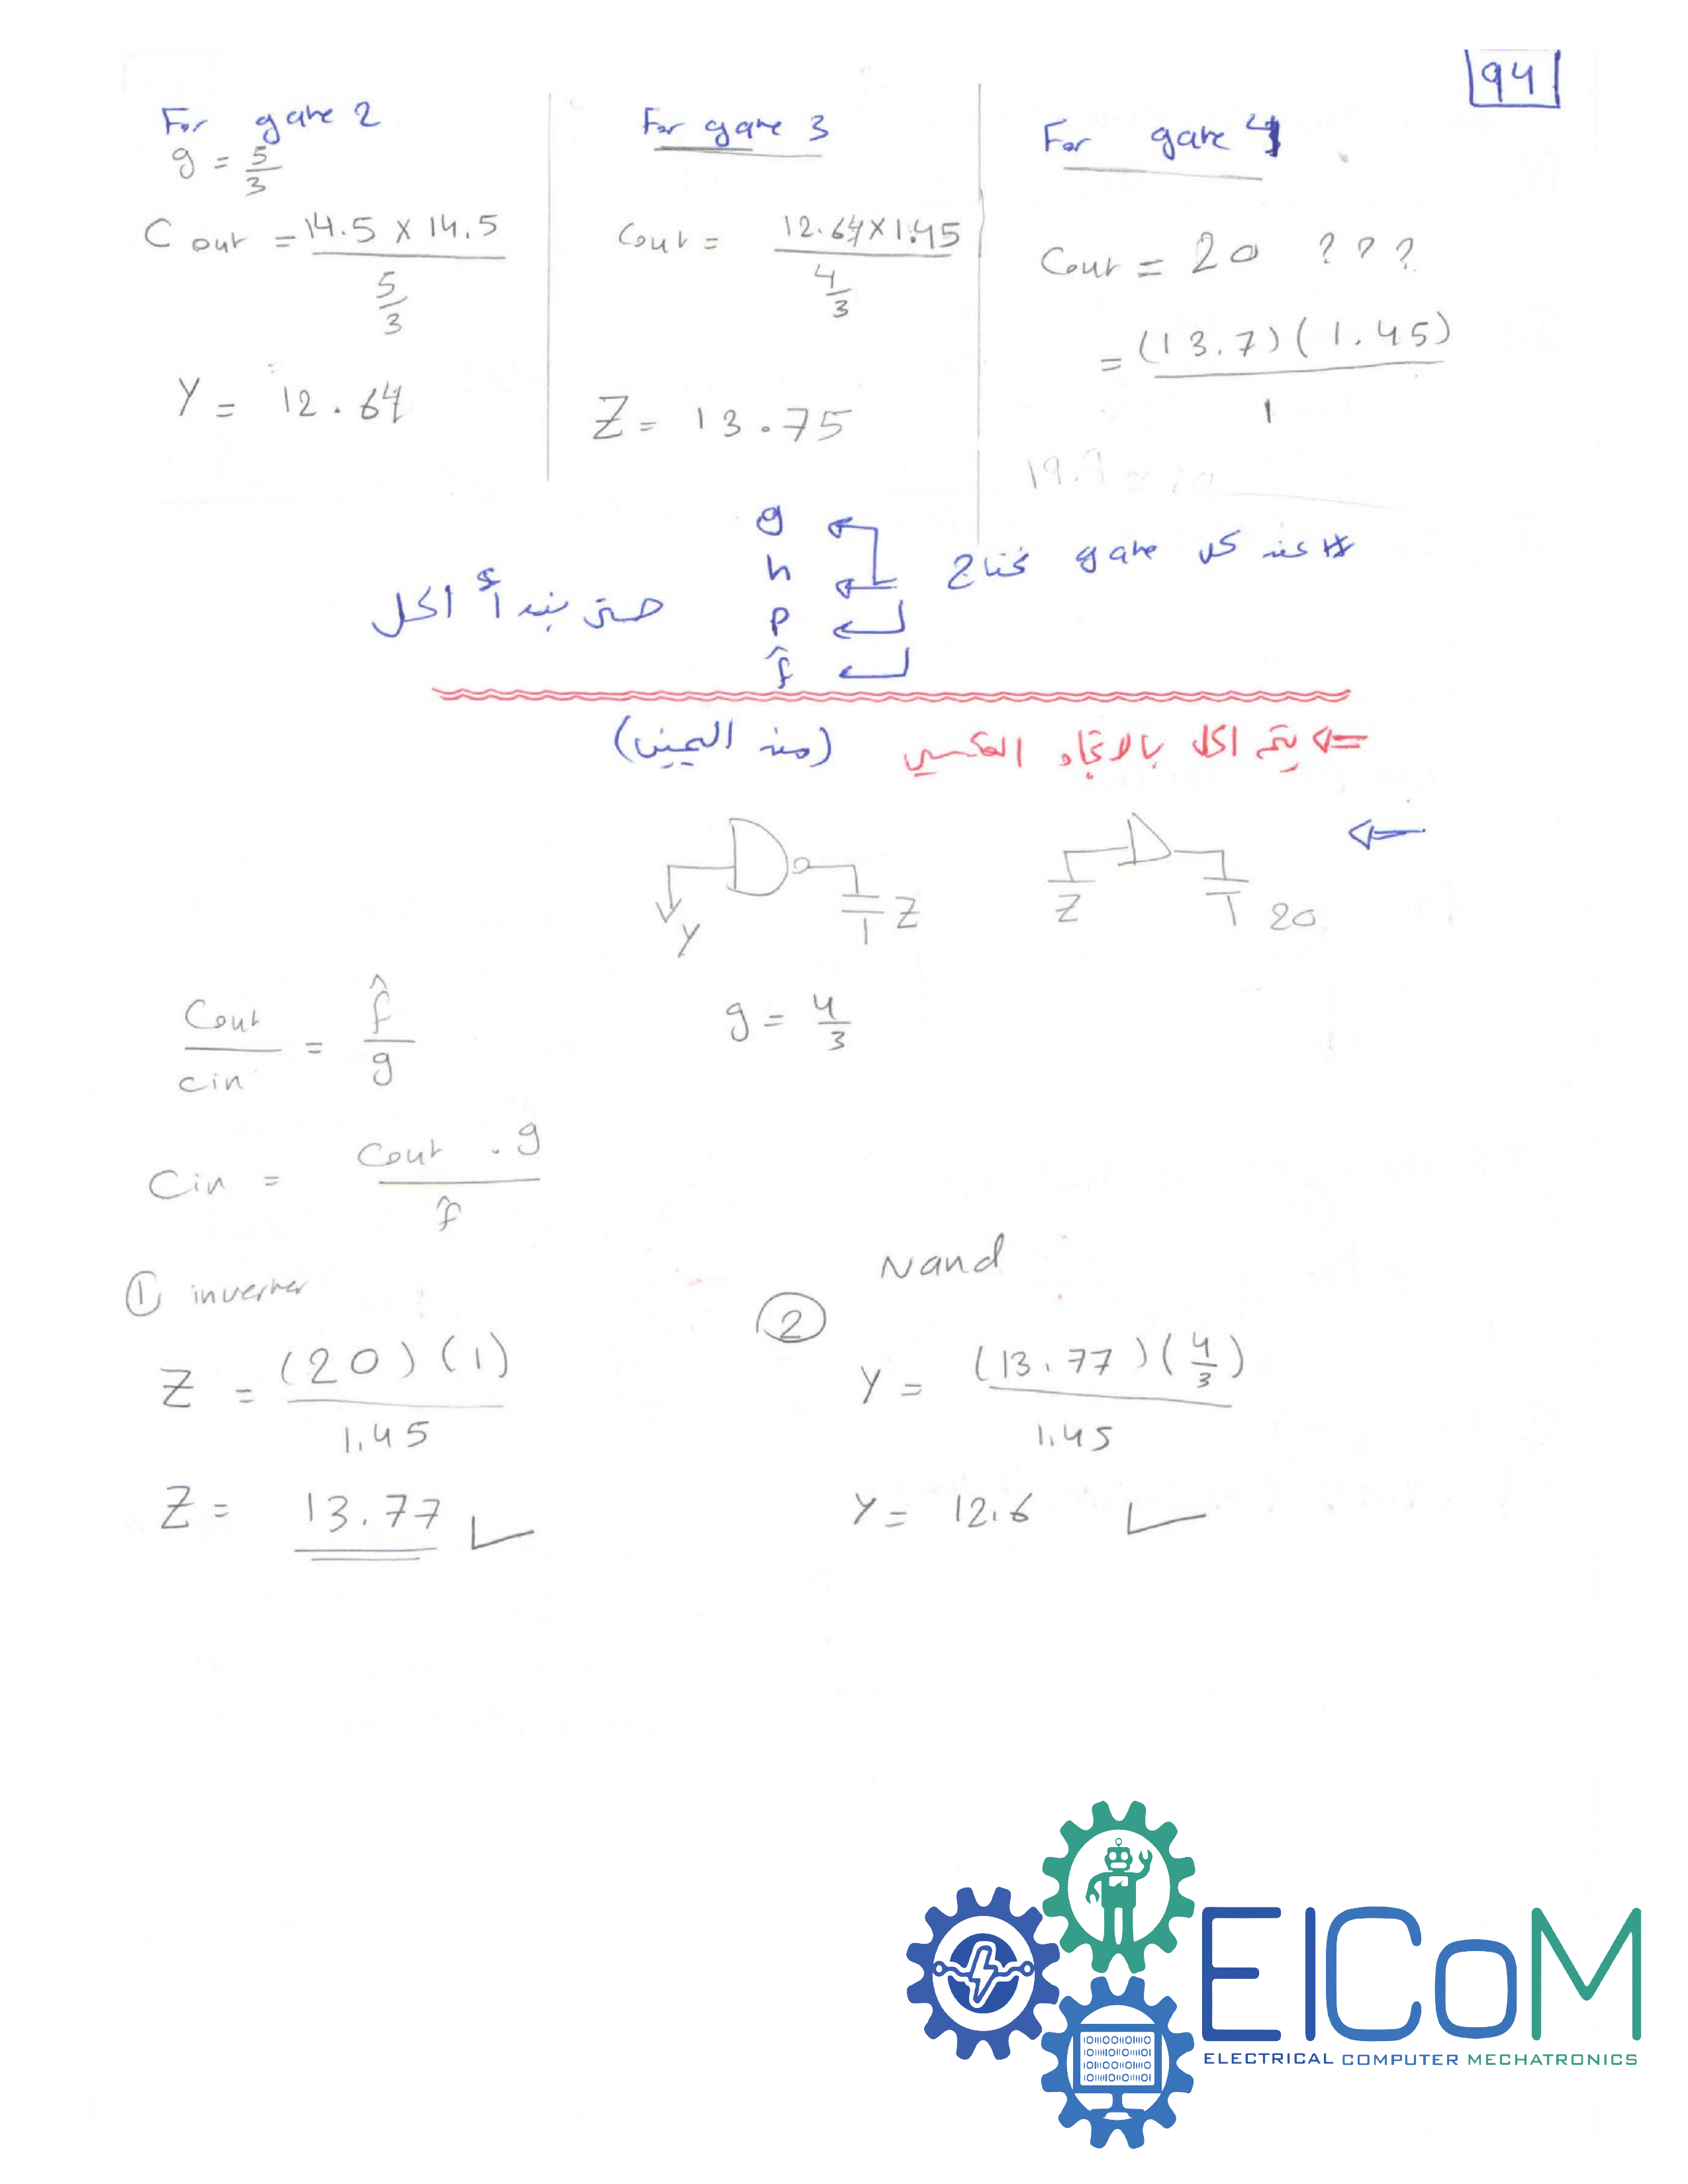 94
For gate 2
g = 5/3
Cout = 14.5 x 14.5 / 5/3
Y = 12.64
For gate 3
Cout = 12.64 x 1.45 / 4/3
Z = 13.75
For gate 4
Cout = 20 ???
= (13.7)(1.45) / 1
19.9 ≈ 20
* عند كل gate نحتاج
g
h
p
f̂
حتى نبدأ الحل
<= يتم الحل بالاتجاه العكسي (من اليمين)
Y
Z
Z
20
Cout / cin = f̂ / g
g = 4/3
Cin = Cout . g / f̂
① inverter
Z = (20)(1) / 1.45
Z = 13.77 ✓
Nand
②
Y = (13.77)(4/3) / 1.45
Y = 12.6 ✓
EICoM
ELECTRICAL COMPUTER MECHATRONICS